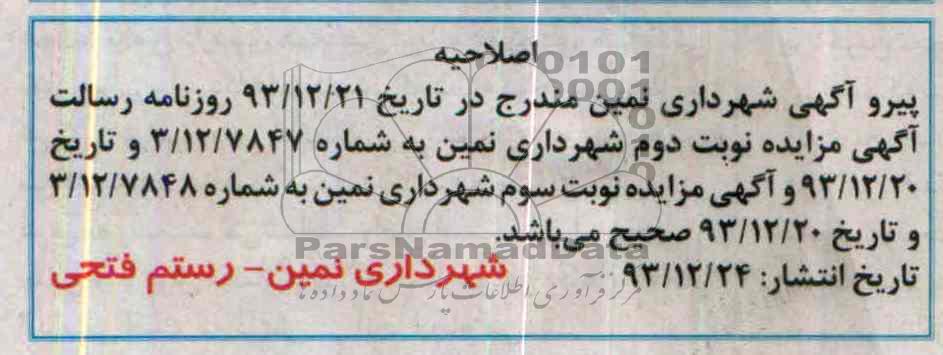 اصلاحیه
پیرو آگهی شهرداری نمین مندرج در تاریخ ۹۳/۱۲/۲۱ روزنامه رسالت
آگهی مزایده نوبت دوم شهرداری نمین به شماره ۳/۱۲/۷۸۴۷ و تاریخ
۹۳/۱۲/۲۰ و آگهی مزایده نوبت سوم شهرداری نمین به شماره ۳/۱۲/۷۸۴۸
و تاریخ ۹۳/۱۲/۲۰ صحیح می‌باشد.
ParsNamadData
تاریخ انتشار: ۹۳/۱۲/۲۴
شهرداری نمین- رستم فتحی
مرکز فرآوری اطلاعات پارس نماد داده ها